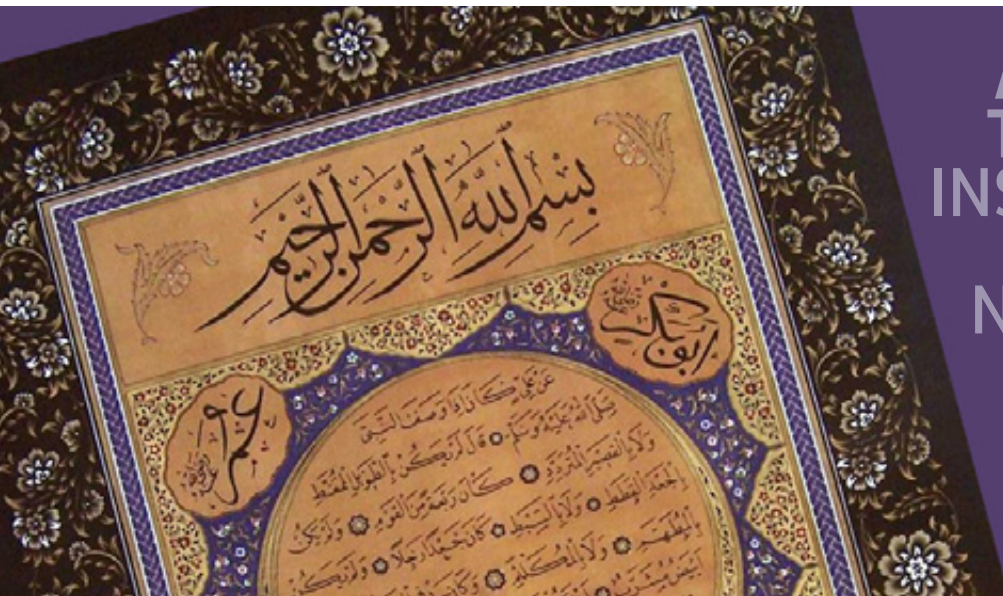 بسم الله الرحمن الرحيم
ابو بكر
عمر
عن علي كان إذا وصف النبي
صلى الله عليه وسلم قال لم يكن بالطويل الممغط
ولا بالقصير المتردد كان ربعة من القوم ولم يكن
بالجعد القطط ولا بالسبط كان جعدا رجلا ولم يكن
بالمطهم ولا بالمكلثم وكان
أبيض مشرب
INS
N